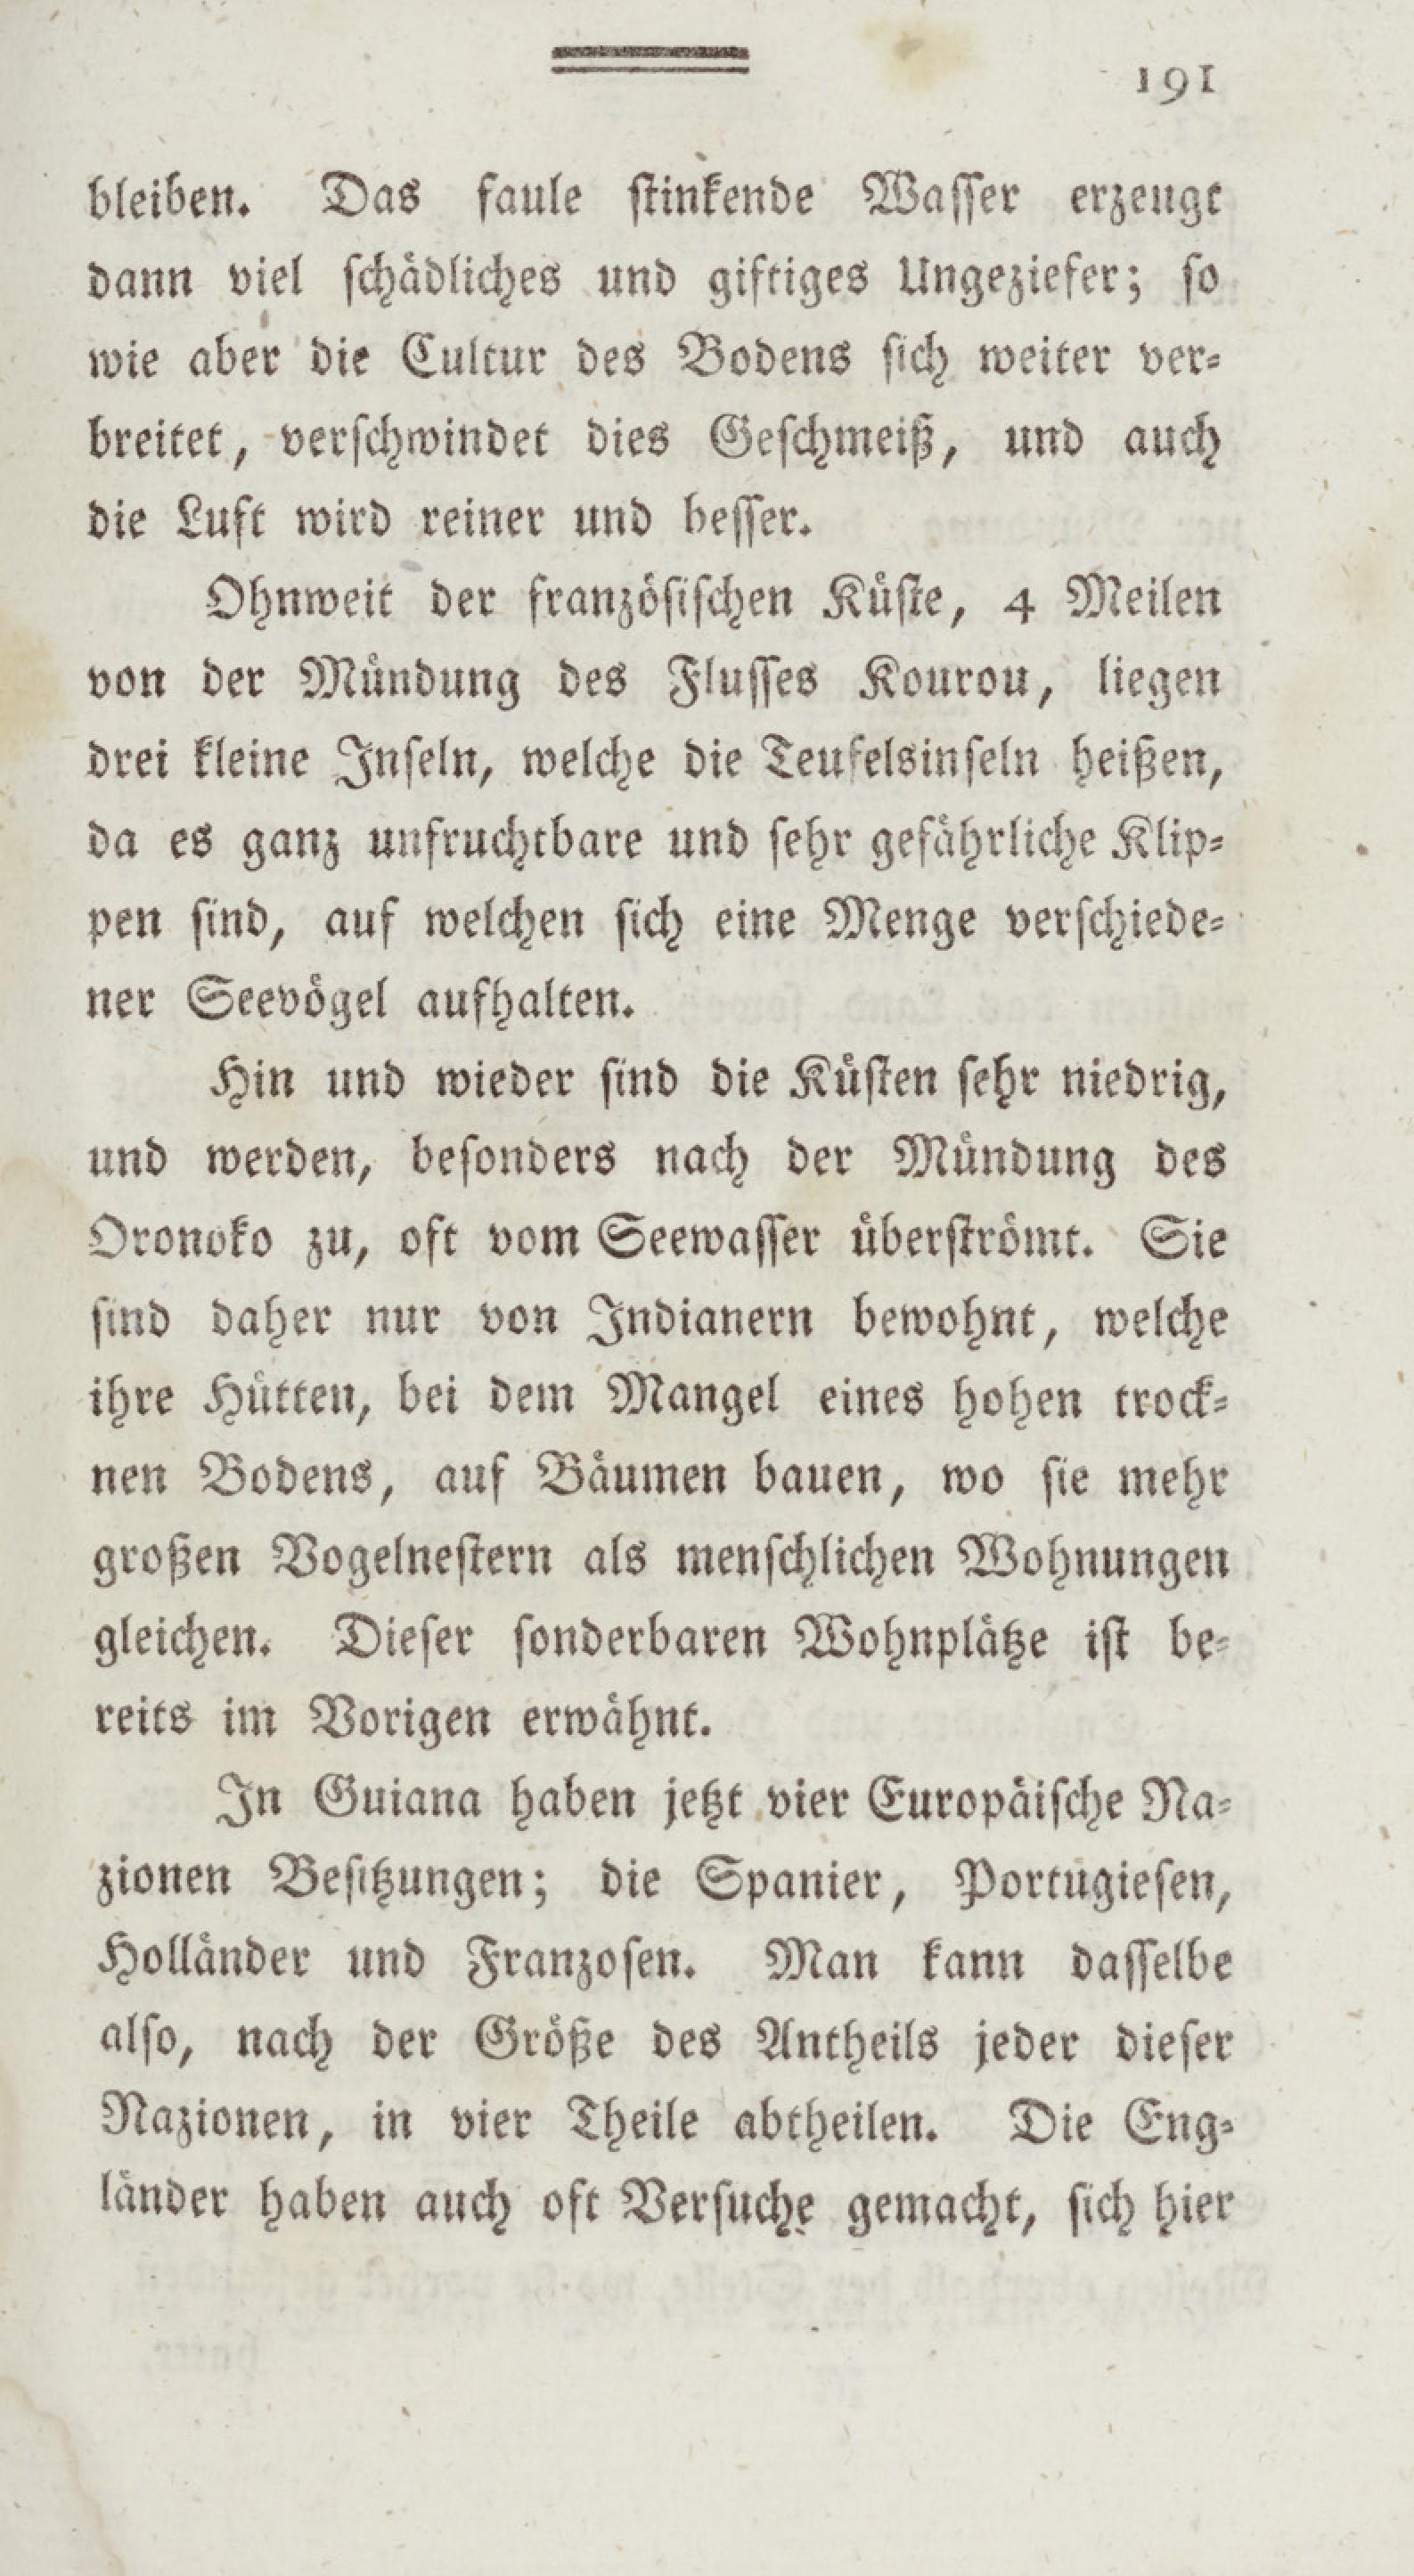 191
bleiben. Das faule stinkende Wasser erzeugt
dann viel schädliches und giftiges Ungeziefer; so
wie aber die Cultur des Bodens sich weiter ver-
breitet, verschwindet dies Geschmeiß, und auch
die Luft wird reiner und besser.
Ohnweit der französischen Küste, 4 Meilen
von der Mündung des Flusses Kourou, liegen
drei kleine Inseln, welche die Teufelsinseln heißen,
da es ganz unfruchtbare und sehr gefährliche Klip-
pen sind, auf welchen sich eine Menge verschiede-
ner Seevögel aufhalten.
Hin und wieder sind die Küsten sehr niedrig,
und werden, besonders nach der Mündung des
Oronoko zu, oft vom Seewasser überströmt. Sie
sind daher nur von Indianern bewohnt, welche
ihre Hütten, bei dem Mangel eines hohen trock-
nen Bodens, auf Bäumen bauen, wo sie mehr
großen Vogelnestern als menschlichen Wohnungen
gleichen. Dieser sonderbaren Wohnplätze ist be-
reits im Vorigen erwähnt.
In Guiana haben jetzt vier Europäische Na-
zionen Besitzungen; die Spanier, Portugiesen,
Holländer und Franzosen. Man kann dasselbe
also, nach der Größe des Antheils jeder dieser
Nazionen, in vier Theile abtheilen. Die Eng-
länder haben auch oft Versuche gemacht, sich hier